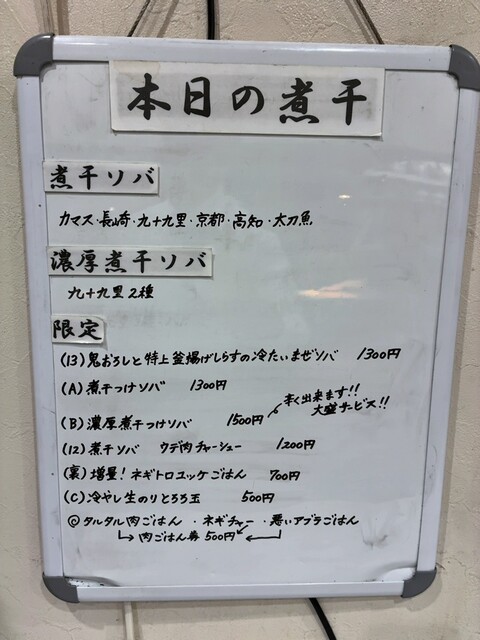 本日の煮干
煮干ソバ
カマス・長崎・九十九里・京都・高知・太刀魚
濃厚煮干ソバ
九十九里2種
限定
(13)鬼おろしと特上釜揚げしらすの冷たいまぜソバ 1300円
(A)煮干つけソバ 1300円
早く出来ます!!
大盛サービス!!
(B)濃厚煮干つけソバ 1500円
(12)煮干ソバ ウデ肉チャーシュー 1200円
(裏)増量!ネギトロユッケごはん 700円
(C)冷やし生のりとろろ玉 500円
◎タルタル肉ごはん ・ネギチャー ・悪いアブラごはん
肉ごはん券 500円